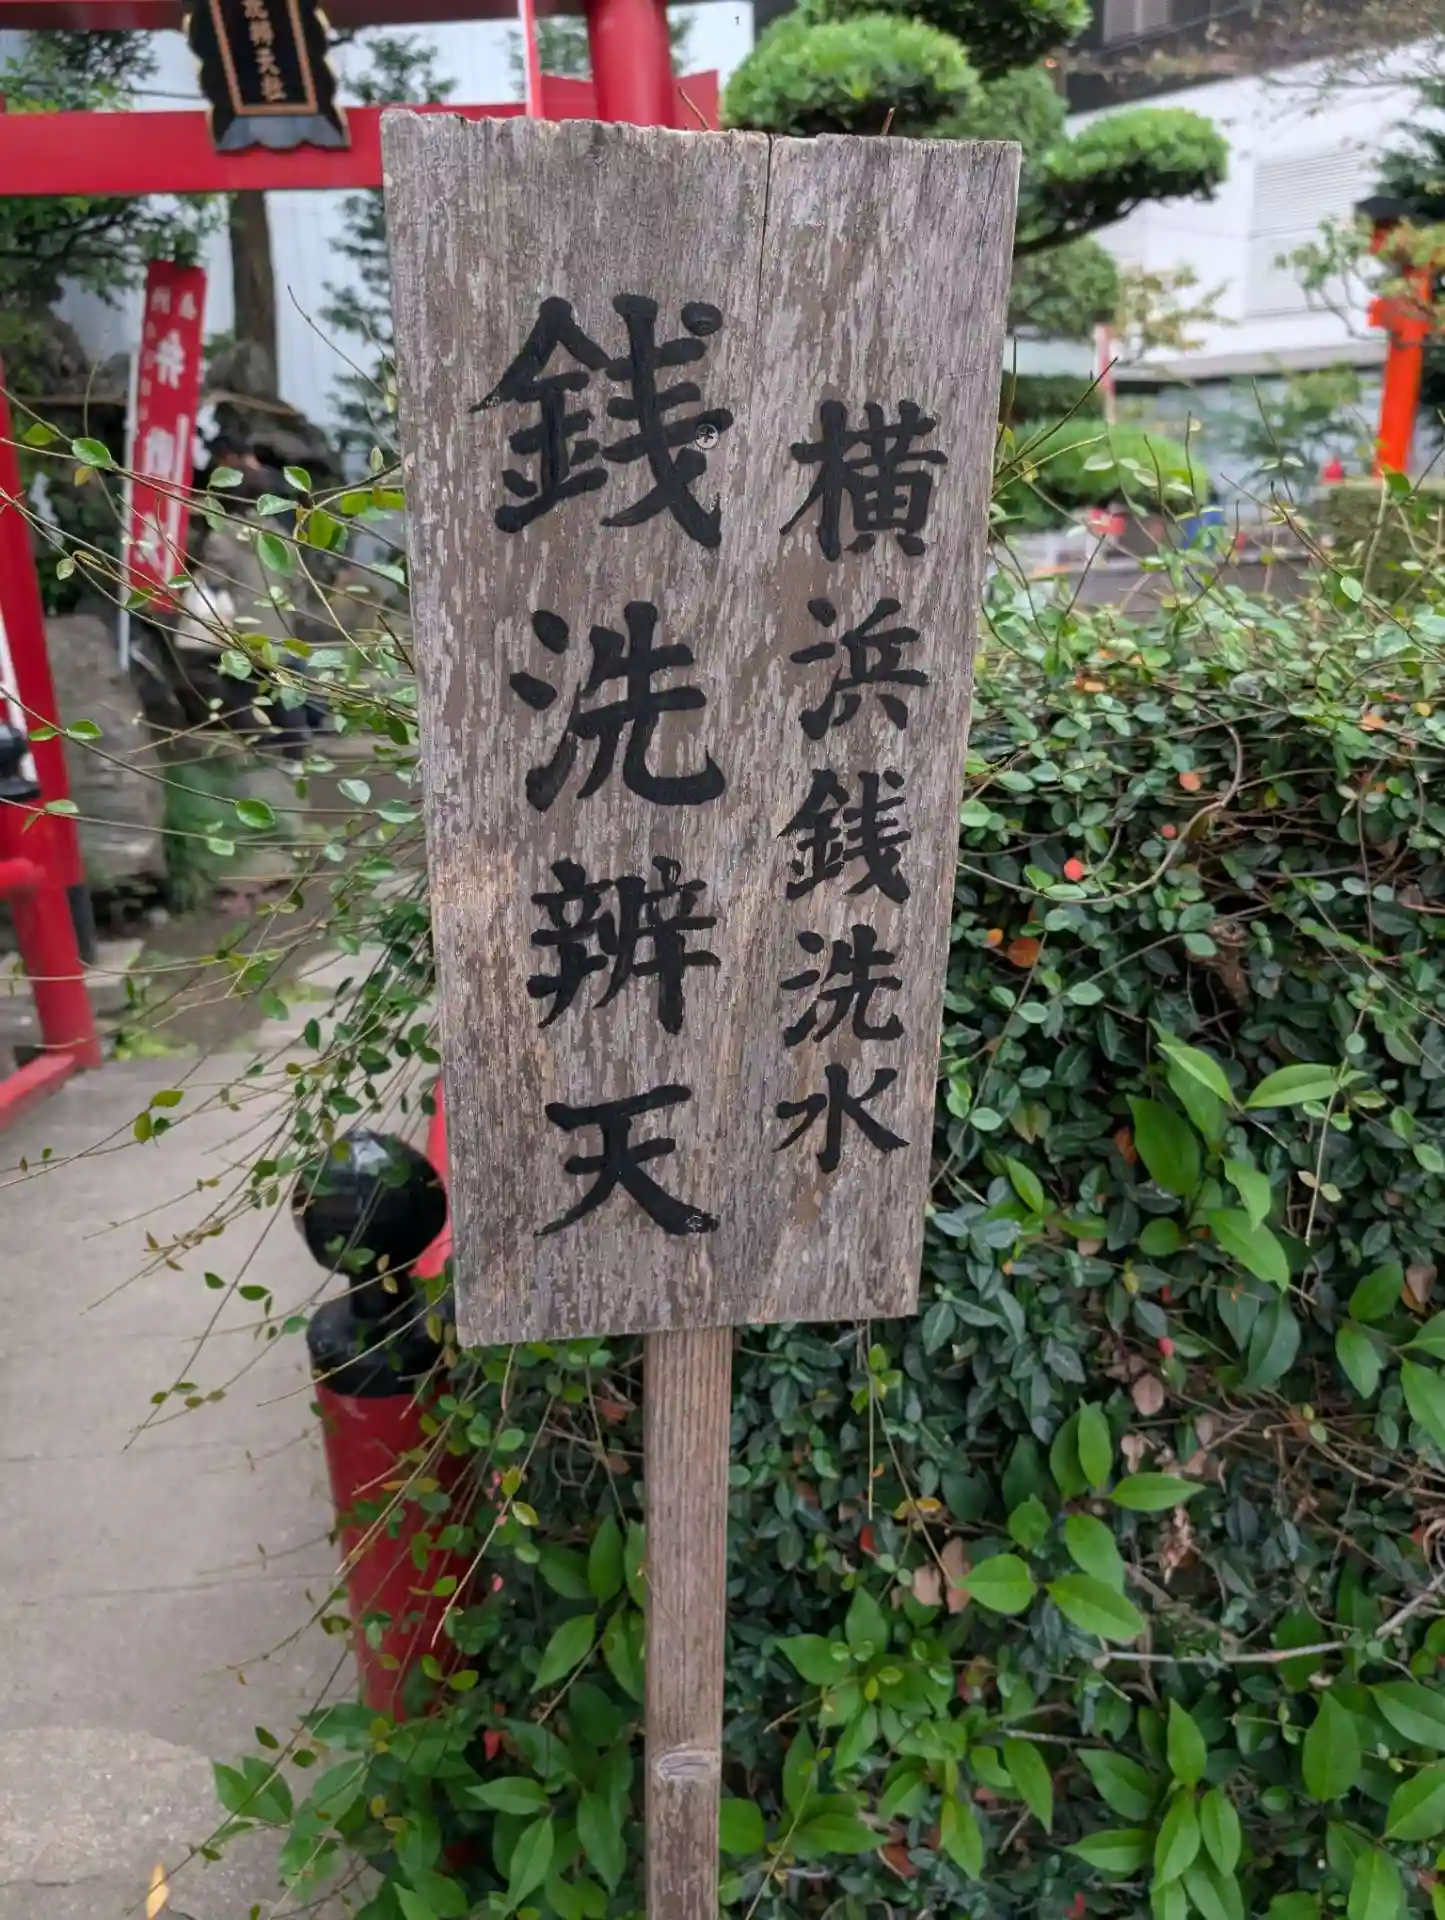 横浜銭洗水
銭洗辨天